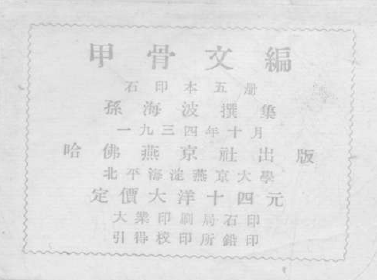 甲骨文編
石印本五册
孫海波撰集
一九三四年十月
哈佛燕京社出版
北平海淀燕京大學
定價大洋十四元
大業印刷局石印
引得校印所鉛印